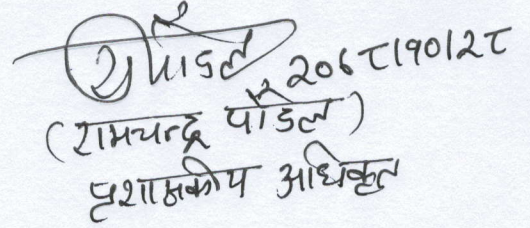 पौडेल २०६८।१०।२८
(रामचन्द्र पौडेल)
प्रशासकीय अधिकृत